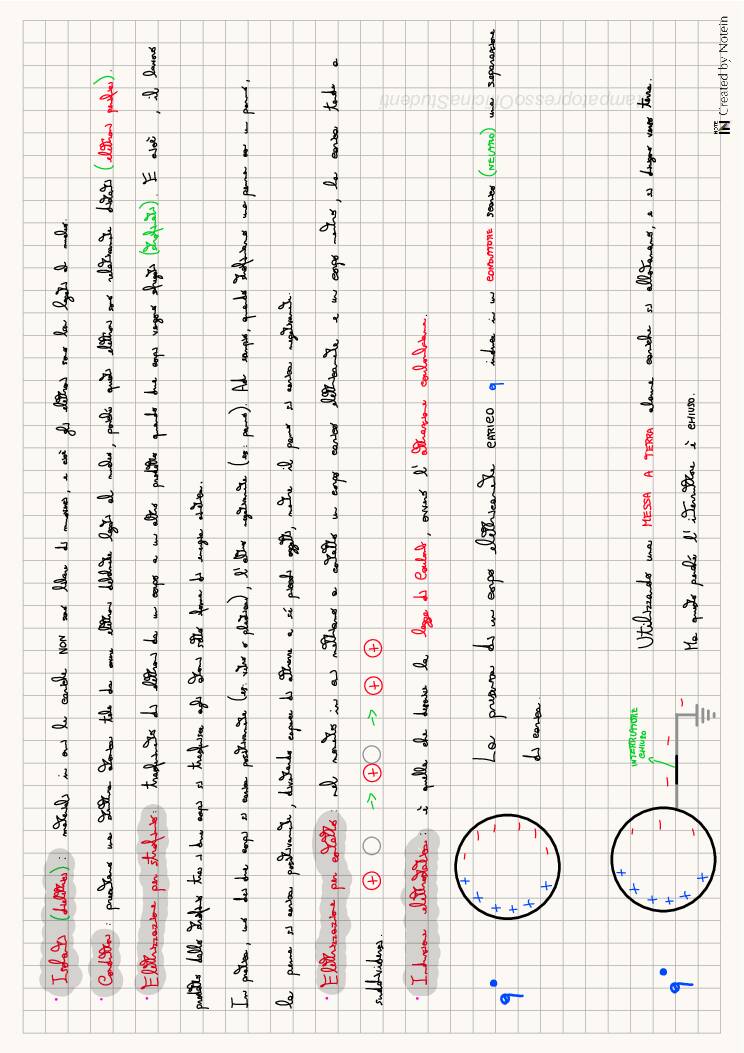 • Isolanti (dielettrici): materiali in cui le cariche NON sono libere di muoversi, e cioè gli elettroni sono ben legati al nucleo.
• Conduttori: presentano una struttura atomica tale da avere elettroni debolmente legati al nucleo, poiché questi elettroni sono relativamente distanti (elettroni periferici).
• Elettrizzazione per strofinio: trasferimento di elettroni da un corpo a un altro prodotto quando due corpi vengono sfregati (strofinati). E cioè, il lavoro
prodotto dallo strofinio tra i due corpi si trasferisce agli atomi sotto forma di energia cinetica.
In pratica, uno dei due corpi si carica positivamente (es: vetro o plastica), l'altro negativamente (es: panno). Ad esempio, quando strofiniamo una penna con un panno,
la penna si carica positivamente, diventando capace di attrarre a sé piccoli oggetti, mentre il panno si carica negativamente.
• Elettrizzazione per contatto: nel momento in cui mettiamo a contatto un corpo carico elettricamente e un corpo neutro, la carica tende a
suddividersi. + -> + -> + +
• Induzione elettrostatica: è quella che descrive la legge di Coulomb, ovvero l'attrazione coulombiana.
La presenza di un corpo elettricamente CARICO q induce in un CONDUTTORE scarico (NEUTRO) una separazione
di carica.
q + + + + + + - - - - - -
INTERRUTTORE
CHIUSO
Utilizzando una MESSA A TERRA alcune cariche si allontanano, e si dirigono verso terra.
Ma questo perché l'interruttore è CHIUSO.
q + + + + + + - - - - - -
StampatopressoOfficinaStudenti
NOTE IN Created by Notein